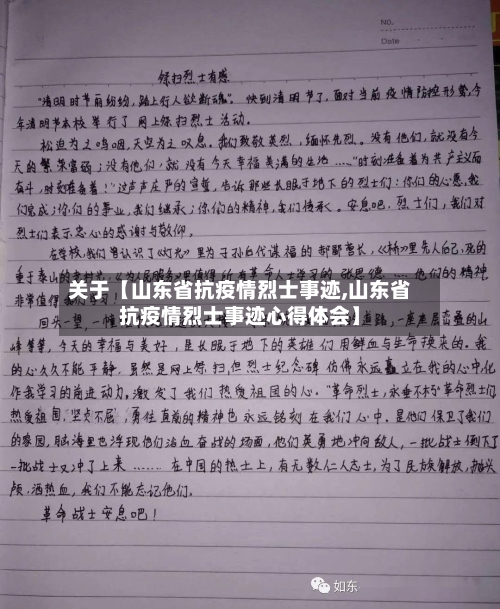 No.
Date
祭扫烈士有感
"清明时节雨纷纷,路上行人欲断魂"。快到清明节了,面对当前疫情防控形势,今
年清明节本校举行了网上祭扫烈士活动。
松涛为之呜咽,天空为之叹息。我们致敬英烈,缅怀先烈。没有他们,就没有今
天的繁荣富强;没有他们,就没有今天幸福美满的生活……"时刻准备着为共产主义而
奋斗,时刻准备着!"这声声庄严的宣誓,告诉那些长眠于地下的烈士们:你们的心愿,我
们完成;你们的事业,我们继承;你们的精神,我们传承。安息吧,烈士们,我们对
烈士们表示衷心的感谢与敬仰。
在学校,我们曾认识了《灯光》里为子孙后代谋福的郝副营长,《桥》里先人后己,死的
重于泰山的老村长,《为人民服务》里值得所有革命人士学习的张思德……他们的精神
非常值得我
关于【山东省抗疫情烈士事迹,山东省
抗疫情烈士事迹心得体会】
回头一望,一幢
路,一座座峦叠的山
峰等等,今天的幸福与美好,是长眠于地下的英雄们用鲜血与生命换来的。我
的心久久不能平静,虽然是网上祭扫,但烈士纪念碑仿佛永远矗立在我的心中,化
作我学习的前进动力,激发了我们热爱祖国的心。"革命烈士,永垂不朽"革命烈士们
热爱祖国,坚贞不屈,勇往直前的精神也永远铭刻在我们心中。是他们保卫了我们
的家园,脑海里也浮现他们浴血奋战的场面,他们英勇地冲向敌人,一批战士倒下了
一批战士又冲了上来……在中国的热土上,有无数仁人志士,为了民族解放,抛头
颅,洒热血,我们不能忘记他们。
革命战士安息吧!
如东